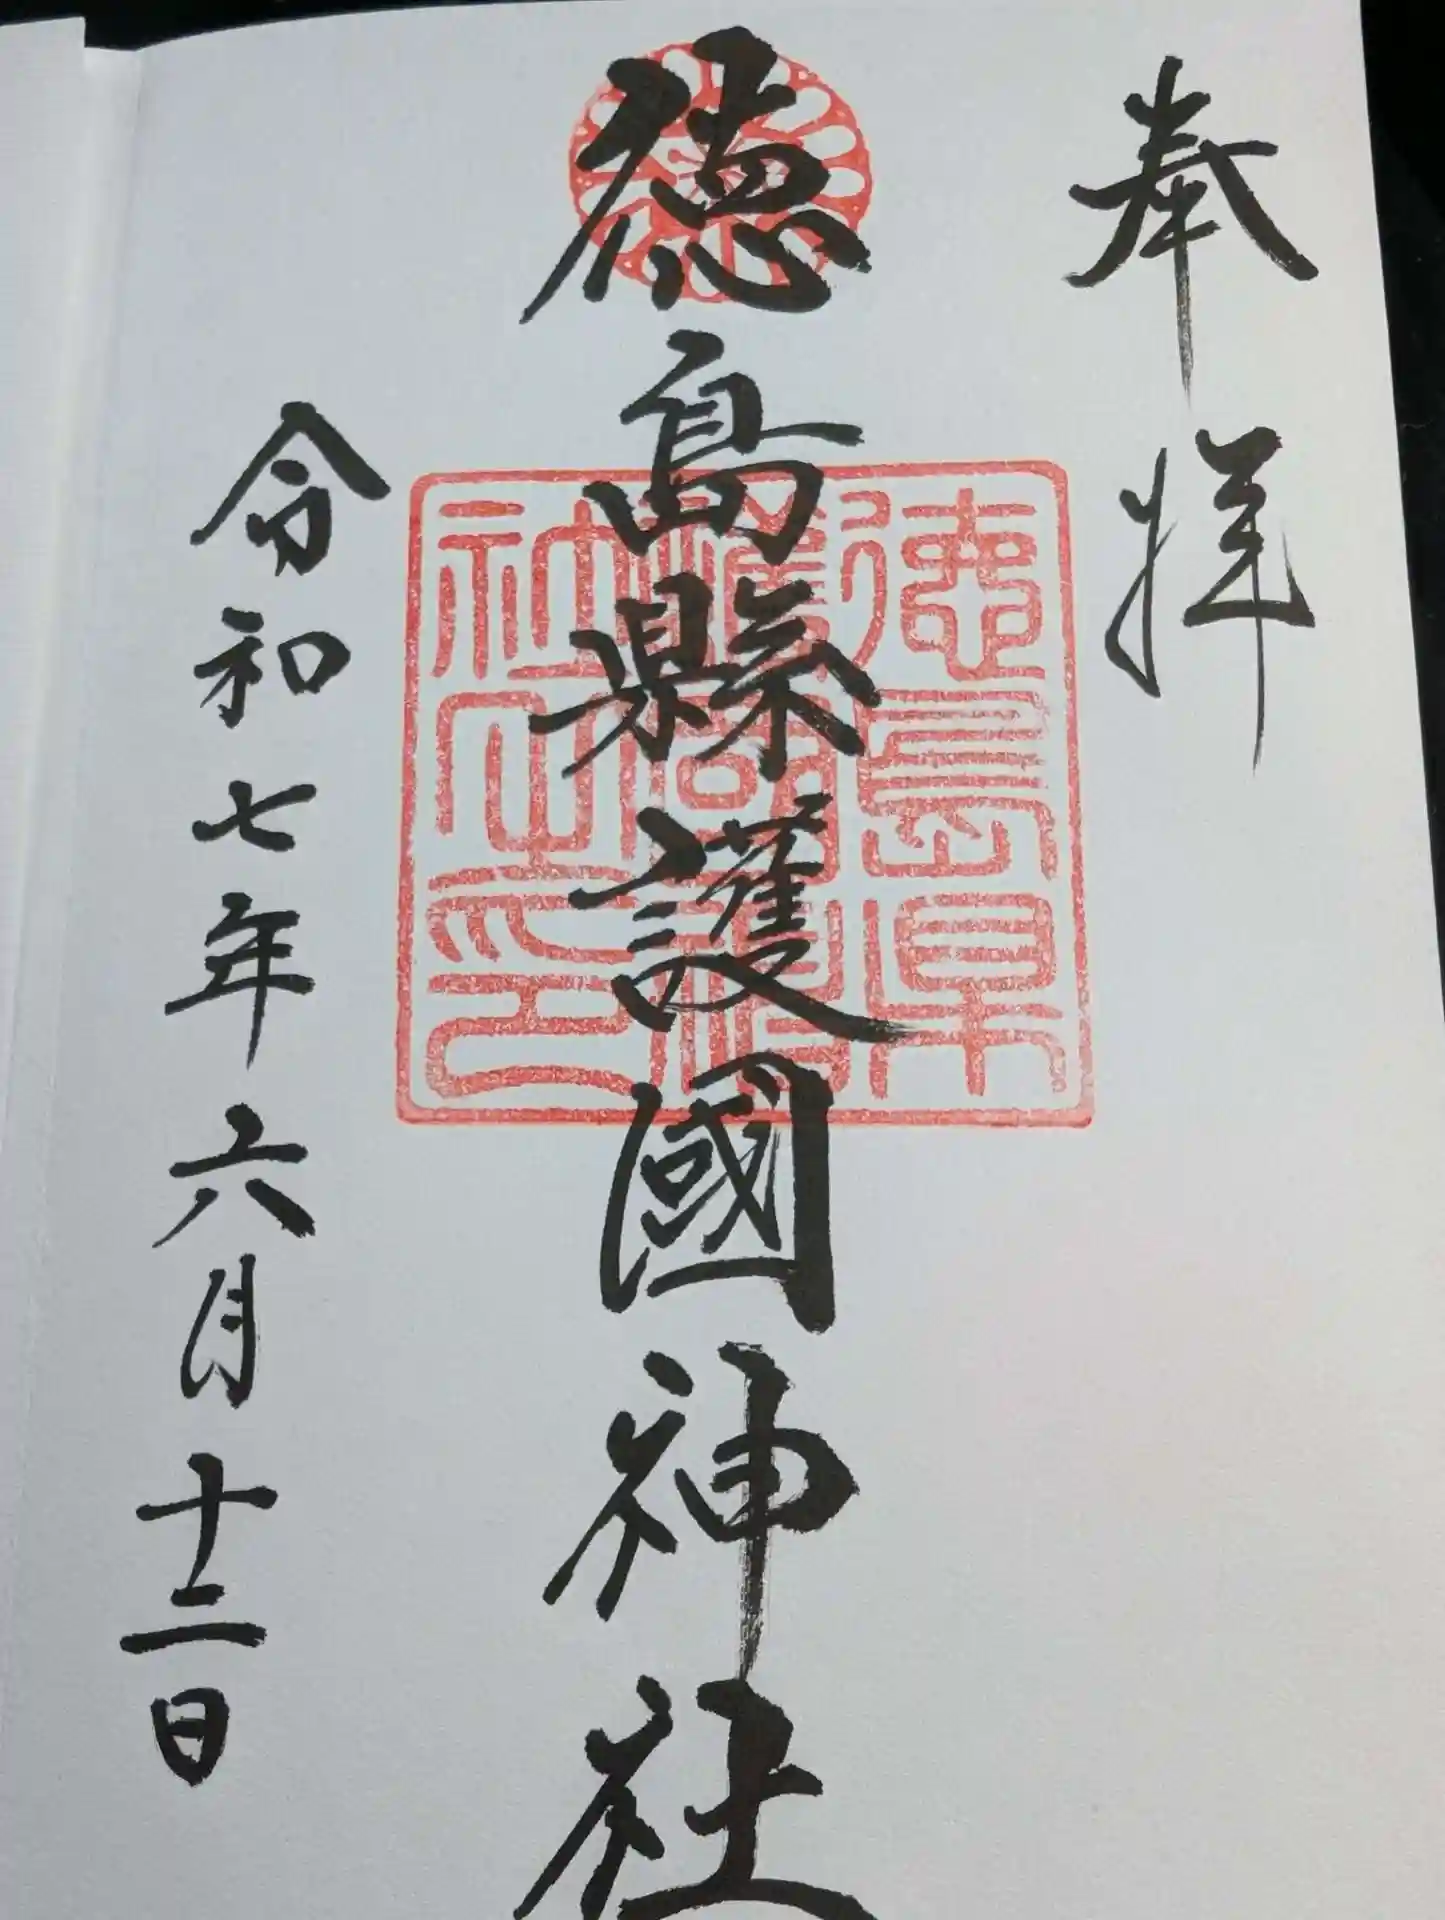 奉拝
徳島縣護國神社
令和七年六月十二日
徳島県
護國神
社之印